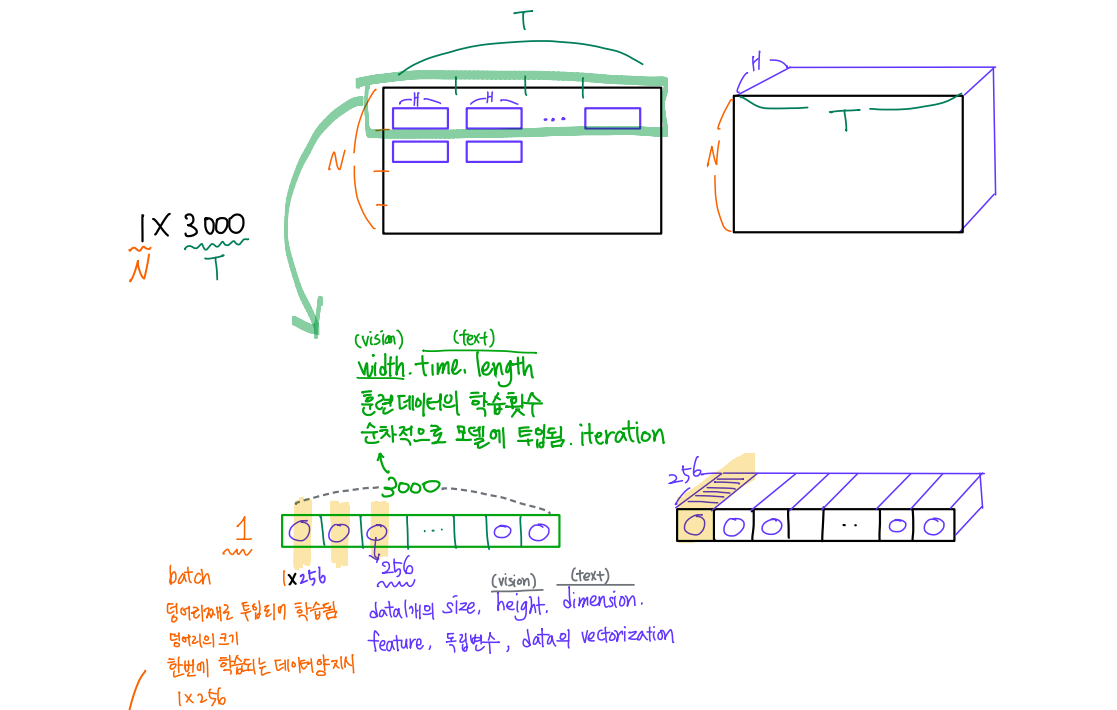 T
H H
...
N
H
T
N
1 X 3000
N T
(vision) (text)
width. time. length
훈련데이터의 학습횟수
순차적으로 모델에 투입됨. iteration
3000
1
...
256
..
batch
1x256
256
덩어리째로 투입되어 학습됨
덩어리의 크기
한번에 학습되는 데이터양 지시
1x256
(vision) (text)
data1개의 size, height. dimension.
feature, 독립변수, data의 vectorization